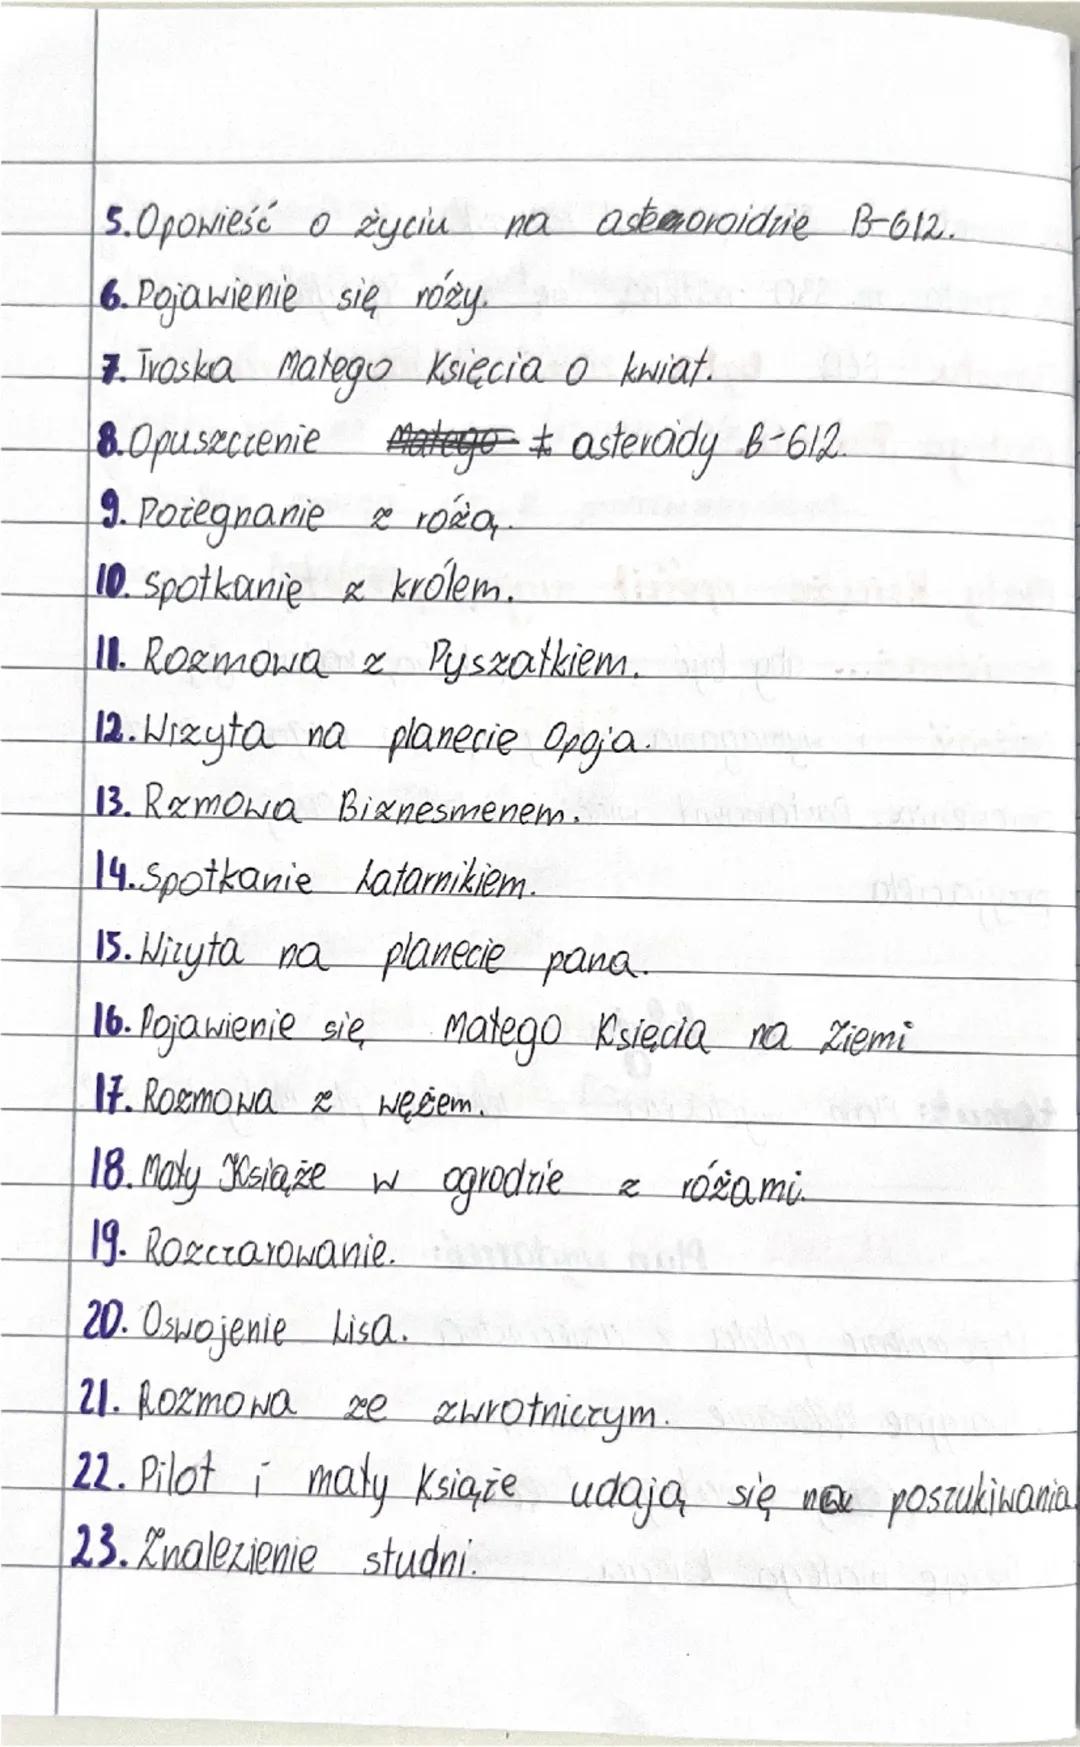 5. Opowieść o życiu na astemoroidzie B-612.
6. Pojawienie się róży.
7. Troska Małego Księcia o kwiat.
8. Opuszczenie Małego ± asteroidy B-612.
9. Pożegnanie z różą.
10. spotkanię z królem.
11. Rozmowa z Pyszałkiem.
12. Wizyta na planecie Opoja.
13. Rzmowa Biznesmenem.
14. Spotkanie Latarnikiem.
15. Wizyta na planecie pana.
16. Pojawienie się Małego Księcia na Ziemi
17. Rozmowa z wężem.
18. Mały Książe w ogrodzie z różami.
19. Rozczarowanie.
20. Oswojenie Lisa.
21. Rozmowa ze zwrotniczym.
22. Pilot i mały Książe udają się na poszukiwania.
23. Znalezienie studni.